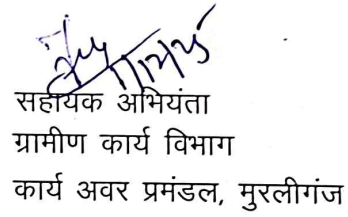 सहायक अभियंता
ग्रामीण कार्य विभाग
कार्य अवर प्रमंडल, मुरलीगंज